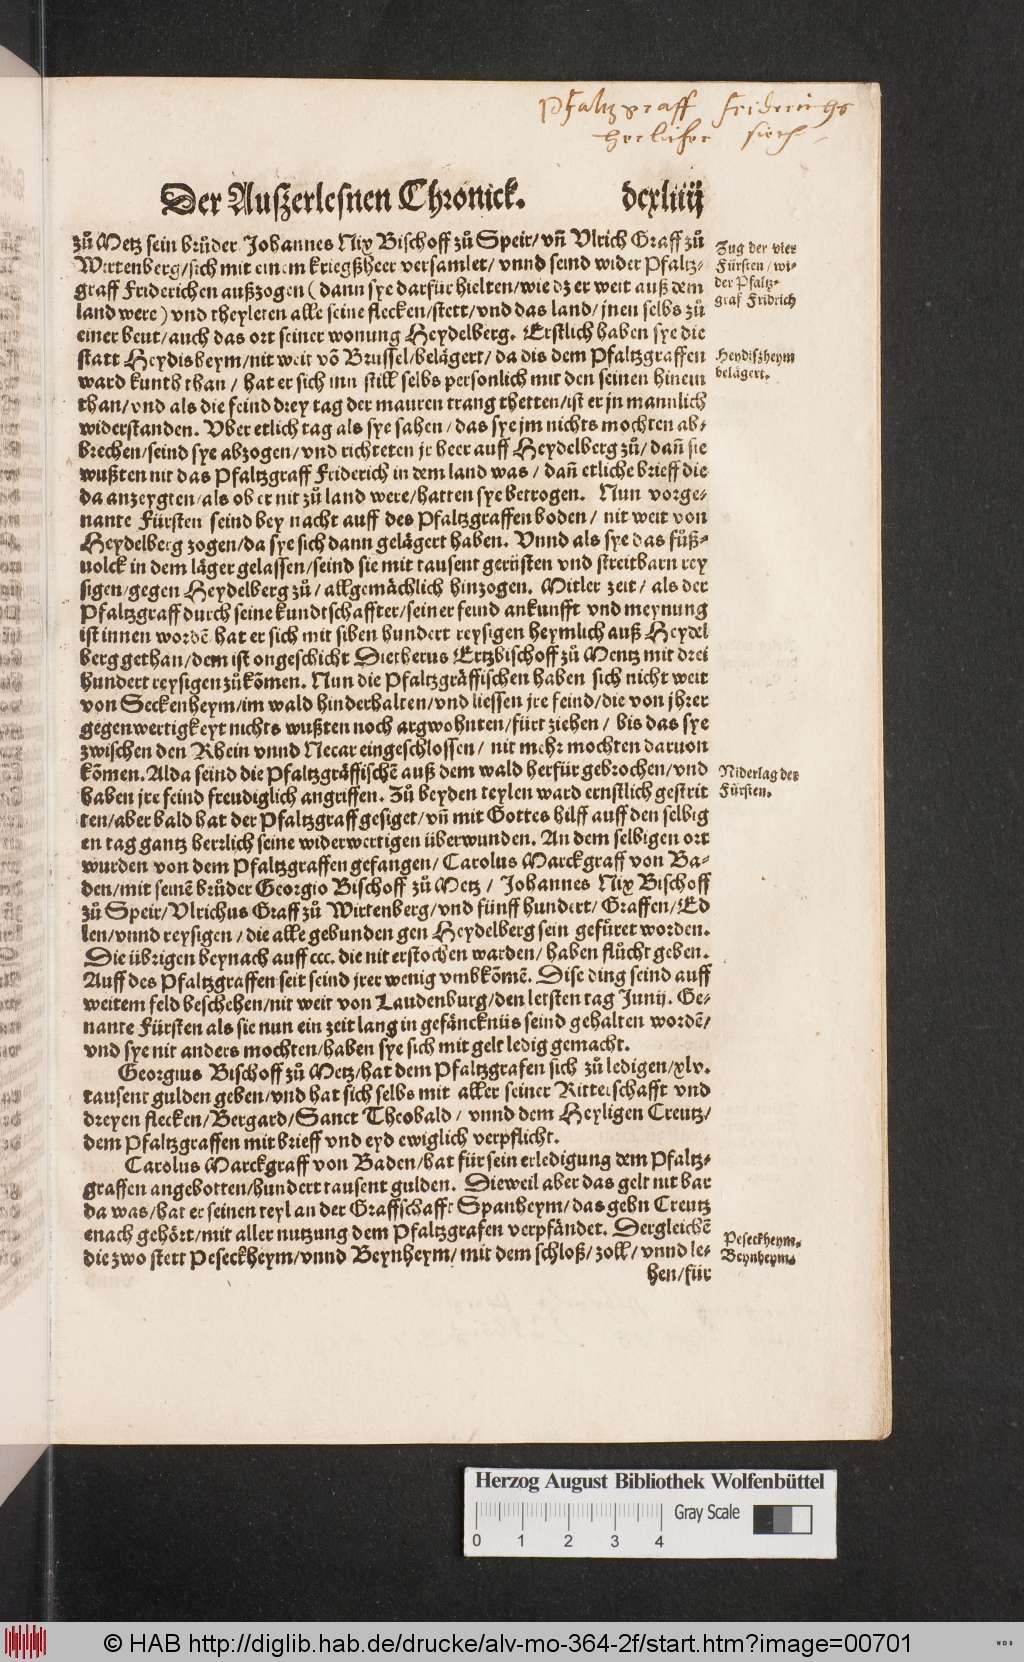 Pfaltzgraff Friderichs
herlicher sieg
Der Auſzerleſnen Chronick. dcxliiij
zů Metz ſein brůder Johannes Nix Biſchoff zů Speir/ vñ Vlrich Graff zů
Wirtenberg/ſich mit einem kriegßheer verſamlet/ vnnd ſeind wider Pfaltz-
graff Friderichen außzogen (dann ſye darfür hielten/wie dz er weit auß dem
land were) vnd theyleten alle ſeine flecken/ſtett/vnd das land/ jnen ſelbs zů
einer beut/auch das ort ſeiner wonung Heydelberg. Erſtlich haben ſye die
ſtatt Heydisheym/nit weit võ Bruſſel/belägert/ da dis dem Pfaltzgraffen
ward kunth than/ hat er ſich inn ſtill ſelbs perſonlich mit den ſeinen hinein
than/vnd als die feind drey tag der mauren trang thetten/iſt er jn mannlich
widerſtanden. Vber etlich tag als ſye ſahen/ das ſye jm nichts mochten ab-
brechen/ſeind ſye abzogen/vnd richteten jr heer auff Heydelberg zů/ dañ ſie
wußten nit das Pfaltzgraff Friderich in dem land was/ dañ etliche brieff die
da anzeygten/als ob er nit zů land were/hatten ſye betrogen. Nun vorge-
nante Fürſten ſeind bey nacht auff des Pfaltzgraffen boden/ nit weit von
Heydelberg zogen/da ſye ſich dann gelägert haben. Vnnd als ſye das fůß-
uolck in dem läger gelaſſen/ſeind ſie mit tauſent gerüſten vnd ſtreitbarn rey
ſigen/gegen Heydelberg zů/ allgemächlich hinzogen. Mitler zeit/ als der
Pfaltzgraff durch ſeine kundtſchaffter/ſeiner feind ankunfft vnd meynung
iſt innen wordẽ hat er ſich mit ſiben hundert reyſigen heymlich auß Heydel
berg gethan/dem iſt ongeſchicht Dietherus Ertzbiſchoff zů Mentz mit drei
hundert reyſigen zůkõmen. Nun die Pfaltzgräffiſchen haben ſich nicht weit
von Seckenheym/im wald hinderhalten/vnd lieſſen jre feind/die von jhrer
gegenwertigkeyt nichts wußten noch argwohnten/fürt ziehen/ bis das ſye
zwiſchen den Rhein vnnd Necar eingeſchloſſen/ nit mehr mochten daruon
kõmen. Alda ſeind die Pfaltzgräffiſchẽ auß dem wald herfür gebrochen/vnd
haben jre feind freudiglich angriffen. Zů beyden teylen ward ernſtlich geſtrit
ten/aber bald hat der Pfaltzgraff geſiget/vñ mit Gottes hilff auff den ſelbig
en tag gantz herrlich ſeine widerwertigen überwunden. An dem ſelbigen ort
wurden von dem Pfaltzgraffen gefangen/ Carolus Marckgraff von Ba-
den/mit ſeinẽ brůder Georgio Biſchoff zů Metz/ Johannes Nix Biſchoff
zů Speir/Vlrichus Graff zů Wirtenberg/vnd fünff hundert/ Graffen/Ed
len/vnnd reyſigen/die alle gebunden gen Heydelberg ſein gefůret worden.
Die übrigen beynach auff ccc. die nit erſtochen warden/ haben flücht geben.
Auff des Pfaltzgraffen ſeit ſeind jrer wenig vmbkõmẽ. Diſe ding ſeind auff
weitem feld beſchehen/nit weit von Laudenburg/den letſten tag Junij. Ge-
nante Fürſten als ſie nun ein zeit lang in gefäncknüs ſeind gehalten wordẽ/
vnd ſye nit anders mochten/haben ſye ſich mit gelt ledig gemacht.
Georgius Biſchoff zů Metz/hat dem Pfaltzgrafen ſich zů ledigen/xlv.
tauſent gulden geben/vnd hat ſich ſelbs mit aller ſeiner Ritterſchafft vnd
dreyen flecken/Bergard/Sanct Theobald/ vnnd dem Heyligen Creutz/
dem Pfaltzgraffen mit brieff vnd eyd ewiglich verpflicht.
Carolus Marckgraff von Baden/hat für ſein erledigung dem Pfaltz-
graffen angebotten/hundert tauſent gulden. Dieweil aber das gelt nit bar
da was/hat er ſeinen teyl an der Graffſchafft Spanheym/das gehn Creutz
enach gehört/mit aller nutzung dem Pfaltzgrafen verpfändet. Dergleichẽ
die zwo ſtett Peſeckheym/vnnd Beynheym/ mit dem ſchloß/ zoll/ vnnd le-
hen/für
Zug der vier
Fürſten/wi-
der Pfaltz-
graf Fridrich
Heydiſzheym
belägert.
Niderlag der
Fürſten.
Peſeckheym.
Beynheym.
Herzog August Bibliothek Wolfenbüttel
Gray Scale
0 1 2 3 4
© HAB http://diglib.hab.de/drucke/alv-mo-364-2f/start.htm?image=00701